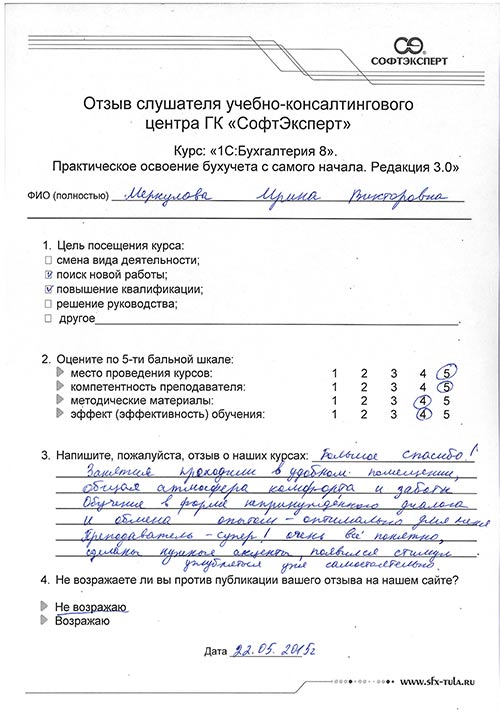 СОФТЭКСПЕРТ
Отзыв слушателя учебно-консалтингового
центра ГК «СофтЭксперт»
Курс: «1С:Бухгалтерия 8».
Практическое освоение бухучета с самого начала. Редакция 3.0»
ФИО (полностью) Меркулова Ирина Викторовна
1. Цель посещения курса:
смена вида деятельности;
поиск новой работы;
повышение квалификации;
решение руководства;
другое
2. Оцените по 5-ти бальной шкале:
место проведения курсов: 1 2 3 4 5
компетентность преподавателя: 1 2 3 4 5
методические материалы: 1 2 3 4 5
эффект (эффективность) обучения: 1 2 3 4 5
3. Напишите, пожалуйста, отзыв о наших курсах: Большое спасибо!
Занятия проходили в удобном помещении,
общая атмосфера комфорта и заботы
Обучение в форме непринуждённого диалога
и обмена опытом - оптимально для меня
Преподаватель - супер! очень всё понятно,
сделаны нужные акценты, появился стимул
углубляться уже самостоятельно.
4. Не возражаете ли вы против публикации вашего отзыва на нашем сайте?
Не возражаю
Возражаю
Дата 22.05.2015г
www.sfx-tula.ru